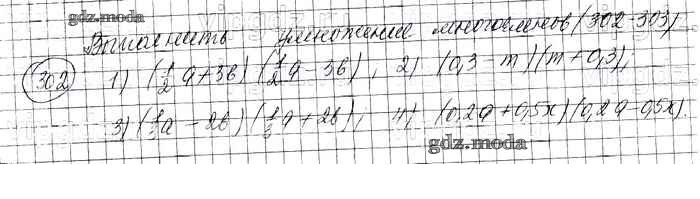 gdz.moda
Выполнить умножение многочленов (302-303)
302 1) (1/2 a + 3b) (1/2 a - 3b), 2) (0,3 - m)(m + 0,3);
3) (1/3 a - 2b) (1/3 a + 2b), 4) (0,2a + 0,5x)(0,2a - 0,5x)
gdz.moda